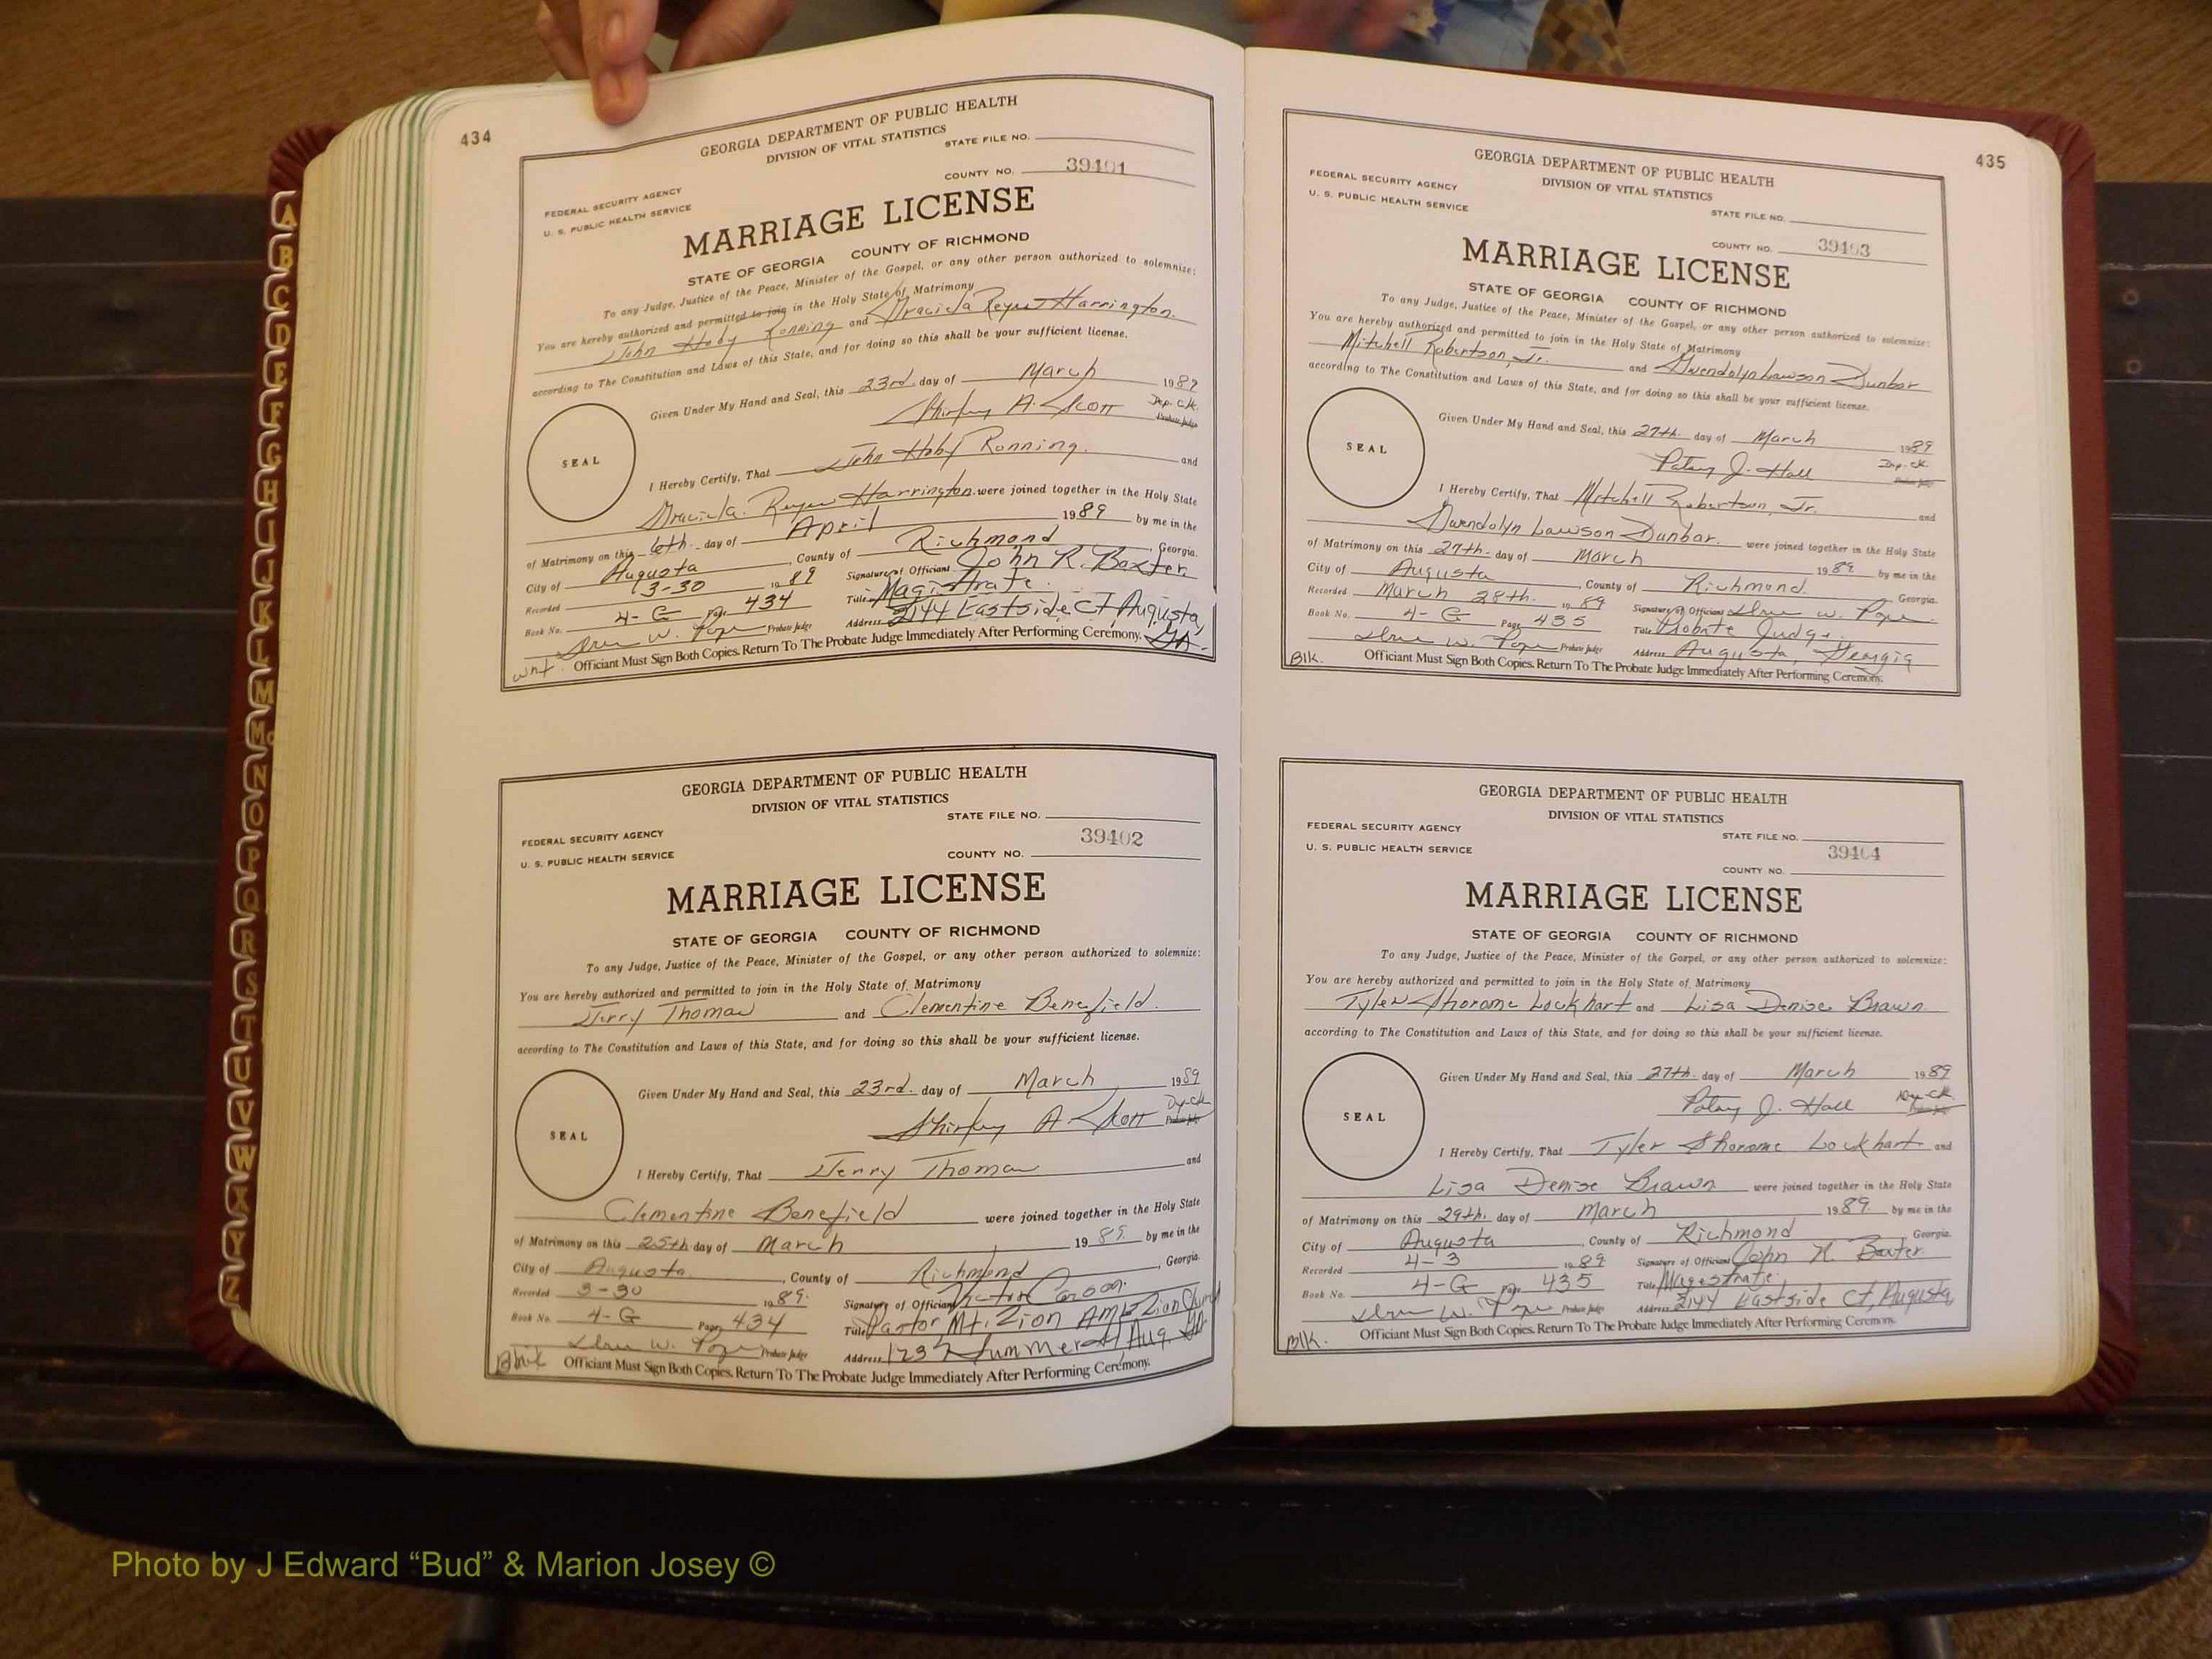 434
GEORGIA DEPARTMENT OF PUBLIC HEALTH
DIVISION OF VITAL STATISTICS
STATE FILE NO.
FEDERAL SECURITY AGENCY
COUNTY NO. 39401
U. S. PUBLIC HEALTH SERVICE
MARRIAGE LICENSE
STATE OF GEORGIA COUNTY OF RICHMOND
To any Judge, Justice of the Peace, Minister of the Gospel, or any other person authorized to solemnize:
You are hereby authorized and permitted to join in the Holy State of Matrimony
John Hoby Ronning and Graciela Harrington
according to The Constitution and Laws of this State, and for doing so this shall be your sufficient license.
Given Under My Hand and Seal, this 23rd day of March 1989
Shirley A. Scott Dep. Ck.
Probate Judge
SEAL
I Hereby Certify, That John Hoby Ronning and
Graciela Harrington were joined together in the Holy State
of Matrimony on this 6th day of April 1989 by me in the
City of Augusta, County of Richmond, Georgia.
Recorded 3-30 1989 Signature of Officiant John R. Baxter
Book No. 4-G Page 434 Title Magistrate
W. Pope Probate Judge Address 2144 Eastside Ct Augusta, GA.
wht. Officiant Must Sign Both Copies. Return To The Probate Judge Immediately After Performing Ceremony.
GEORGIA DEPARTMENT OF PUBLIC HEALTH
DIVISION OF VITAL STATISTICS
STATE FILE NO.
FEDERAL SECURITY AGENCY
39402
U. S. PUBLIC HEALTH SERVICE
COUNTY NO.
MARRIAGE LICENSE
STATE OF GEORGIA COUNTY OF RICHMOND
To any Judge, Justice of the Peace, Minister of the Gospel, or any other person authorized to solemnize:
You are hereby authorized and permitted to join in the Holy State of Matrimony
Jerry Thomas and Clementine Benefield
according to The Constitution and Laws of this State, and for doing so this shall be your sufficient license.
Given Under My Hand and Seal, this 23rd day of March 1989
Shirley A Scott Dep Ck
Probate Judge
SEAL
I Hereby Certify, That Jerry Thomas and
Clementine Benefield were joined together in the Holy State
of Matrimony on this 25th day of March 1989 by me in the
City of Augusta, County of Richmond, Georgia.
Recorded 3-30 1989 Signature of Officiant
Book No. 4-G Page 434 Title Pastor, Mt. Zion AME Zion Church
W. Pope Probate Judge Address 1237 Summer St Aug GA
Officiant Must Sign Both Copies. Return To The Probate Judge Immediately After Performing Ceremony.
435
GEORGIA DEPARTMENT OF PUBLIC HEALTH
DIVISION OF VITAL STATISTICS
FEDERAL SECURITY AGENCY
U. S. PUBLIC HEALTH SERVICE
STATE FILE NO.
COUNTY NO. 39403
MARRIAGE LICENSE
STATE OF GEORGIA COUNTY OF RICHMOND
To any Judge, Justice of the Peace, Minister of the Gospel, or any other person authorized to solemnize:
You are hereby authorized and permitted to join in the Holy State of Matrimony
Mitchell Robertson, Jr. and Gwendolyn Lawson Dunbar
according to The Constitution and Laws of this State, and for doing so this shall be your sufficient license.
Given Under My Hand and Seal, this 27th day of March 1989
Patsy J. Hall Dep. Ck
SEAL
I Hereby Certify, That Mitchell Robertson, Jr. and
Gwendolyn Lawson Dunbar were joined together in the Holy State
of Matrimony on this 27th day of March 1989 by me in the
City of Augusta, County of Richmond, Georgia.
Recorded March 28th 1989 Signature of Officiant W. Pope
Book No. 4-G Page 435 Title Probate Judge
W. Pope Probate Judge Address Augusta, Georgia
Blk. Officiant Must Sign Both Copies. Return To The Probate Judge Immediately After Performing Ceremony.
GEORGIA DEPARTMENT OF PUBLIC HEALTH
DIVISION OF VITAL STATISTICS
FEDERAL SECURITY AGENCY
STATE FILE NO.
U. S. PUBLIC HEALTH SERVICE
39404
COUNTY NO.
MARRIAGE LICENSE
STATE OF GEORGIA COUNTY OF RICHMOND
To any Judge, Justice of the Peace, Minister of the Gospel, or any other person authorized to solemnize:
You are hereby authorized and permitted to join in the Holy State of Matrimony
Tyler Shorome Lockhart and Lisa Denise Brawn
according to The Constitution and Laws of this State, and for doing so this shall be your sufficient license.
Given Under My Hand and Seal, this 27th day of March 1989
Patsy J. Hall Dep Ck.
SEAL
I Hereby Certify, That Tyler Shorome Lockhart and
Lisa Denise Brawn were joined together in the Holy State
of Matrimony on this 29th day of March 1989 by me in the
City of Augusta, County of Richmond, Georgia.
Recorded 4-3 1989 Signature of Officiant John R. Baxter
Book No. 4-G Page 435 Title Magestrate
W. Pope Probate Judge Address 2144 Eastside Ct, Augusta
Blk. Officiant Must Sign Both Copies. Return To The Probate Judge Immediately After Performing Ceremony.
A
B
C
D
E
F
G
H
I
J
K
L
M
Mc
N
O
P
Q
R
S
T
U
V
W
X
Y
Z
Photo by J Edward “Bud” & Marion Josey ©